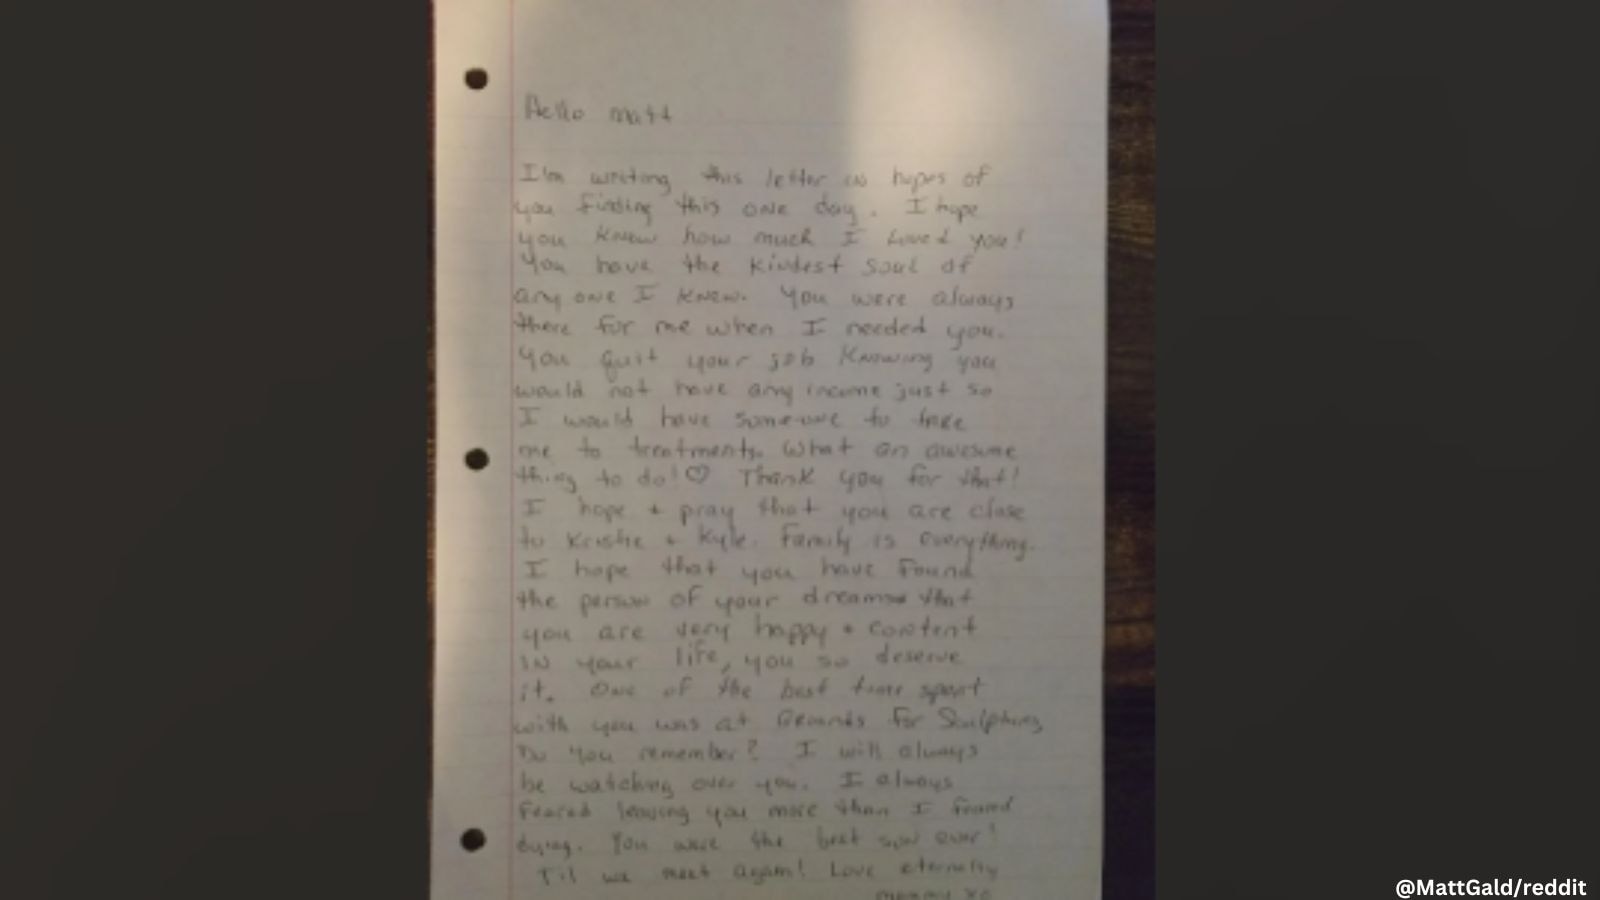 Hello Matt
I'm writing this letter in hopes of
you finding this one day. I hope
you know how much I Loved you!
You have the kindest soul of
anyone I knew. You were always
there for me when I needed you.
You quit your job knowing you
would not have any income just so
I would have someone to take
me to treatments. What an awesome
thing to do! ♡ Thank you for that!
I hope + pray that you are close
to Kristie + Kyle. Family is everything.
I hope that you have found
the person of your dreams that
you are very happy + content
in your life, you so deserve
it. One of the best times spent
with you was at Grounds for Sculpture
Do you remember? I will always
be watching over you. I always
feared leaving you more than I feared
dying. You were the best son ever!
Til we meet again! Love eternally
mommy xo
@MattGald/reddit